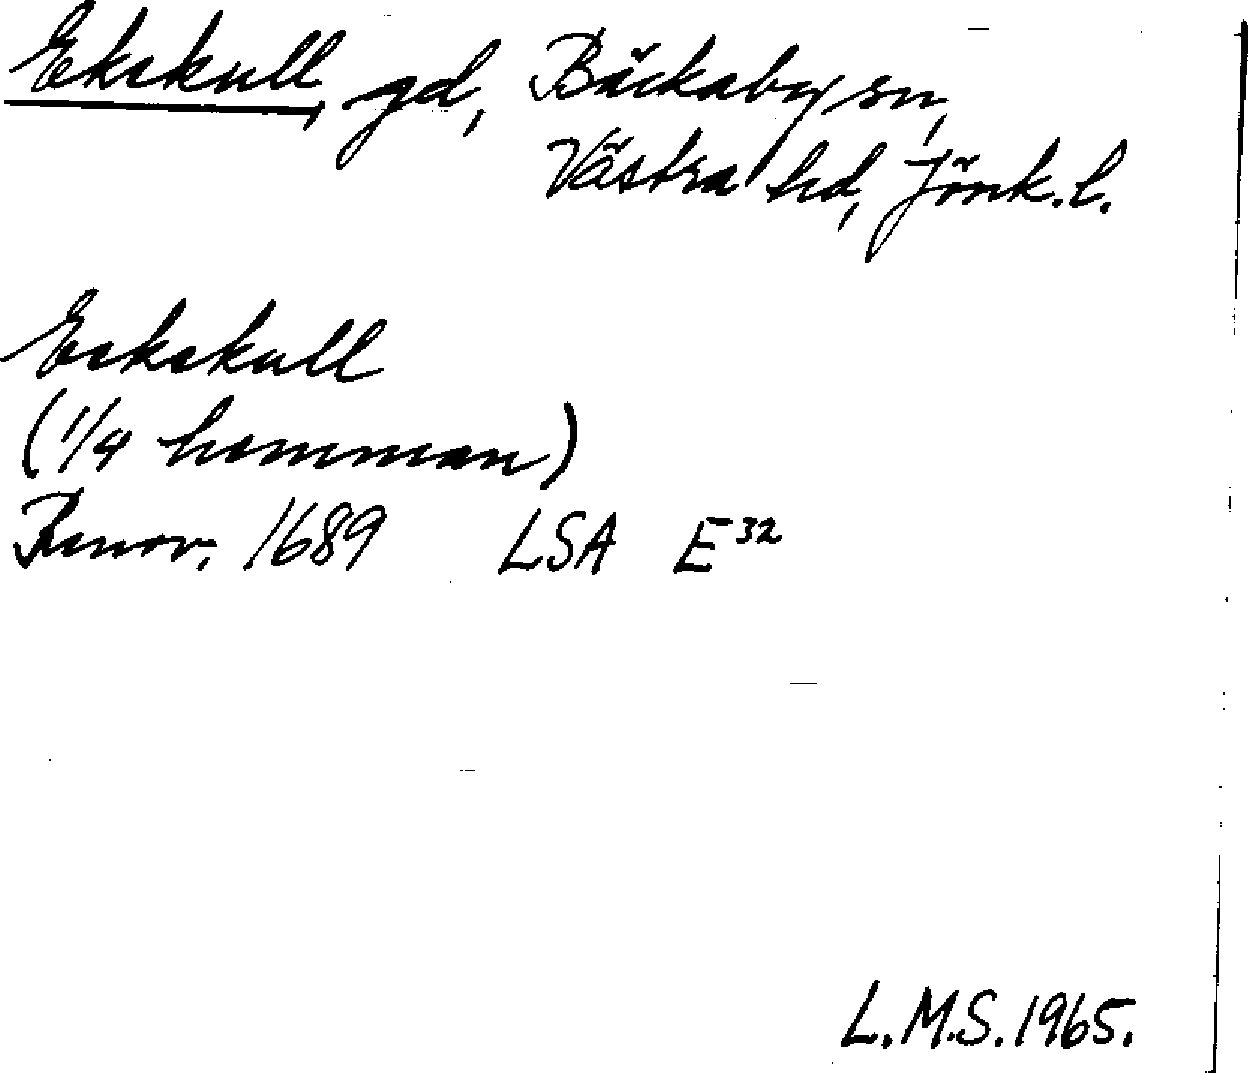 Ekskull, gd, Bäckaby sn,
Västra hd, Jönk. l.
Eckskull
(1/4 hemman)
Renov. 1689 LSA E³²
L.M.S. 1965.